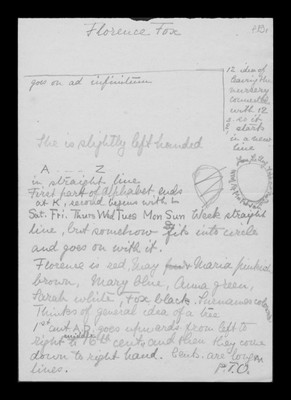 Florence Fox
goes on ad infinitum
12 idea of
leaving the
nursery
connected
with 12
& starts
in a new
line
She is slightly left handed
A ---- Z
in straight line
First part of alphabet ends
at K, second begins with L
Sat. Fri. Thurs Wed Tues Mon Sun Week straight
line, but somehow fits into circle
and goes on with it.
Florence is red, May Maria, pinkish
brown, Mary blue, Anna green,
Sarah white, Fox black. Surnames
Thinks of general idea of a line
1st cent A.D. goes upwards from left to
right to middle 15th cents and then they come
down to right hand. Cents. are long
lines.
P.T.O.